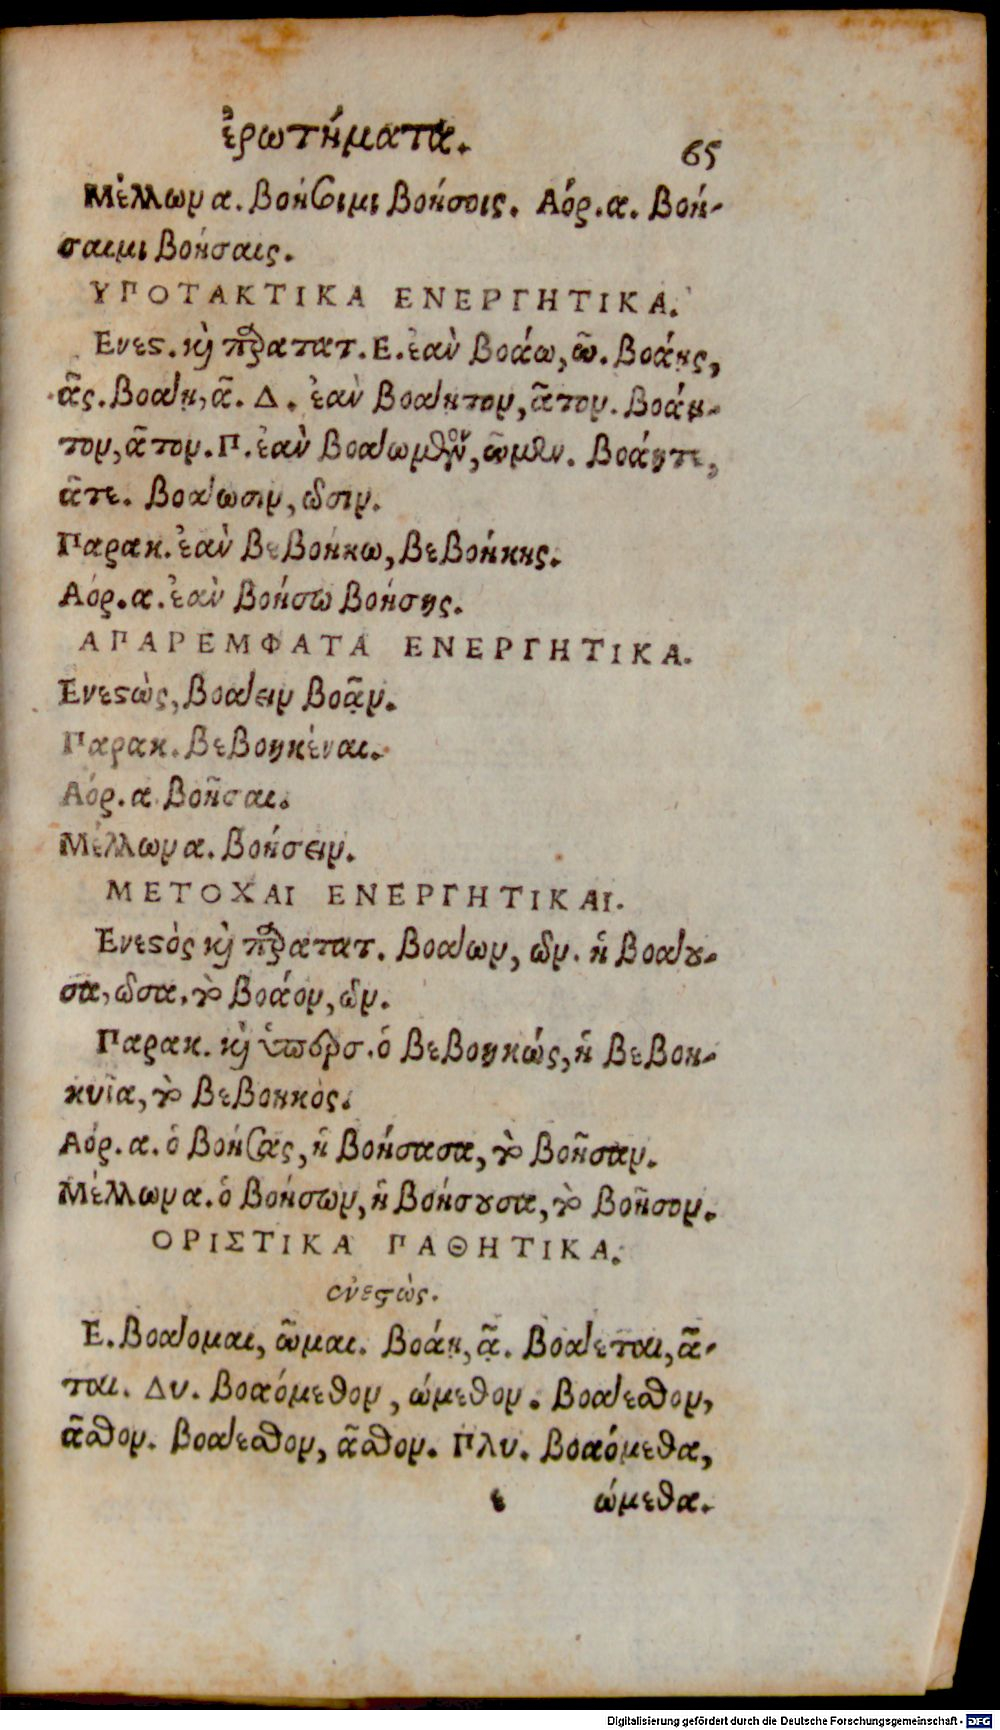 ἐρωτήματα.
65
Μέλλων α. βοήσοιμι βοήσοις. Αόρ. α. βοή-
σαιμι βοήσαις.
ΥΠΟΤΑΚΤΙΚΑ ΕΝΕΡΓΗΤΙΚΑ.
Ενεϛ. ϗ παρατατ. Ε. ἐὰν βοάω, ῶ. βοάῃς,
ᾶς. βοάῃ, ᾶ. Δ. ἐὰν βοάητον, ᾶτον. βοάη-
τον, ᾶτον. Π. ἐὰν βοάωμεν, ῶμεν. βοάητε,
ᾶτε. βοάωσιν, ῶσιν.
Παρακ. ἐὰν βεβοήκω, βεβοήκης.
Αόρ. α. ἐὰν βοήσω βοήσης.
ΑΠΑΡΕΜΦΑΤΑ ΕΝΕΡΓΗΤΙΚΑ.
Ενεϛὼς, βοάειν βοᾷν.
Παρακ. βεβοηκέναι.
Αόρ. α βοῆσαι.
Μέλλων α. βοήσειν.
ΜΕΤΟΧΑΙ ΕΝΕΡΓΗΤΙΚΑΙ.
Ενεϛὸς ϗ παρατατ. βοάων, ῶν. ἡ βοάου-
σα, ῶσα, τὸ βοάον, ῶν.
Παρακ. ϗ ὑπερσ. ὁ βεβοηκώς, ἡ βεβοη-
κυῖα, τὸ βεβοηκὸς.
Αόρ. α. ὁ βοήσας, ἡ βοήσασα, τὸ βοῆσαν.
Μέλλων α. ὁ βοήσων, ἡ βοήσουσα, τὸ βοῆσον.
ΟΡΙΣΤΙΚΑ ΠΑΘΗΤΙΚΑ.
ἐνεϛὼς.
Ε. βοάομαι, ῶμαι. βοάῃ, ᾷ. βοάεται, ᾶ-
ται. Δυ. βοαόμεθον, ώμεθον. βοάεσθον,
ᾶσθον. βοάεσθον, ᾶσθον. Πλυ. βοαόμεθα,
ε ώμεθα.
Digitalisierung gefördert durch die Deutsche Forschungsgemeinschaft - DFG